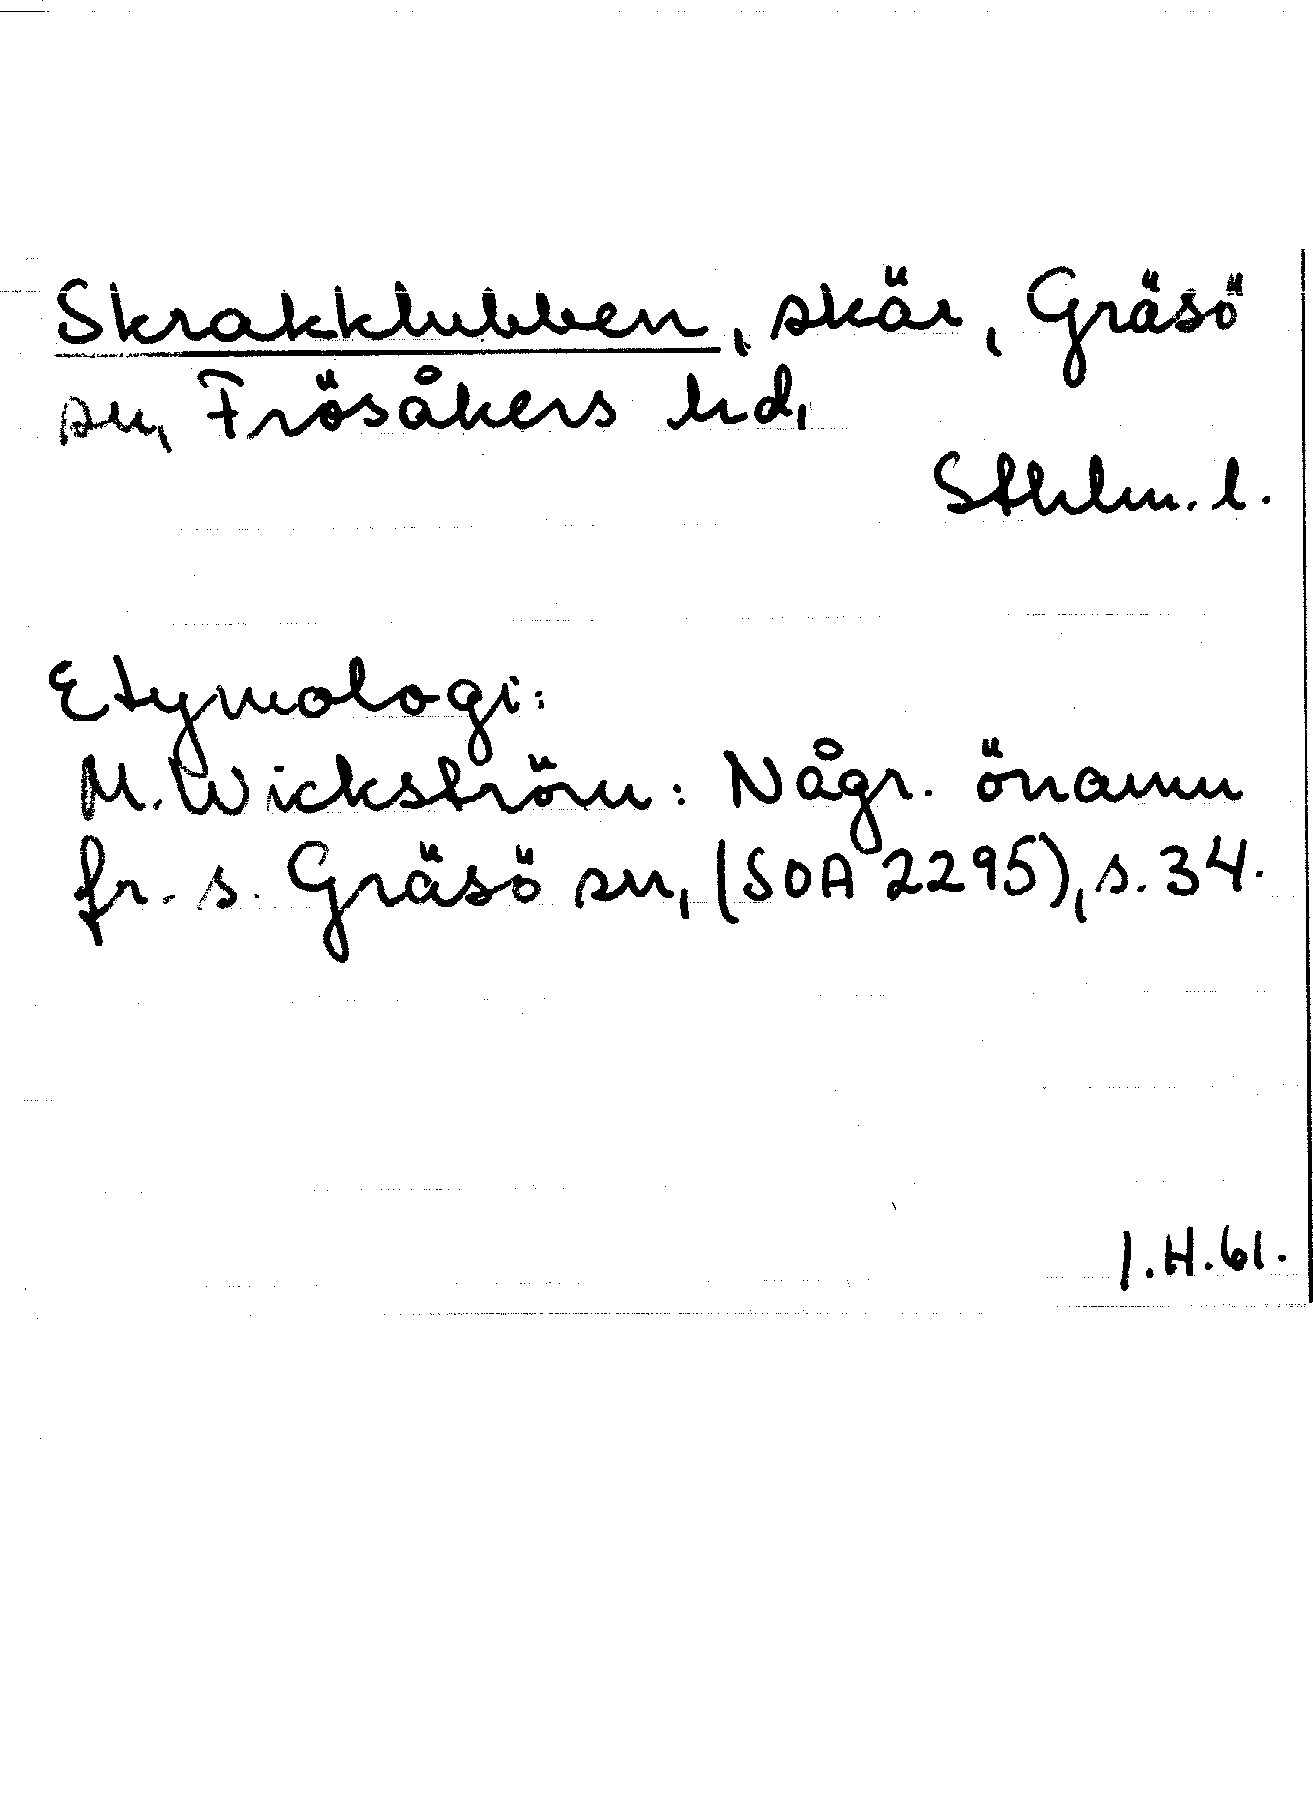 Skrakklubben, skär, Gräsö
sn, Frösåkers hd,
Sthlm. l.
Etymologi:
M. Wickström: Någr. önamn
fr. s. Gräsö sn, (SOA 2295), s. 34.
I.H.61.